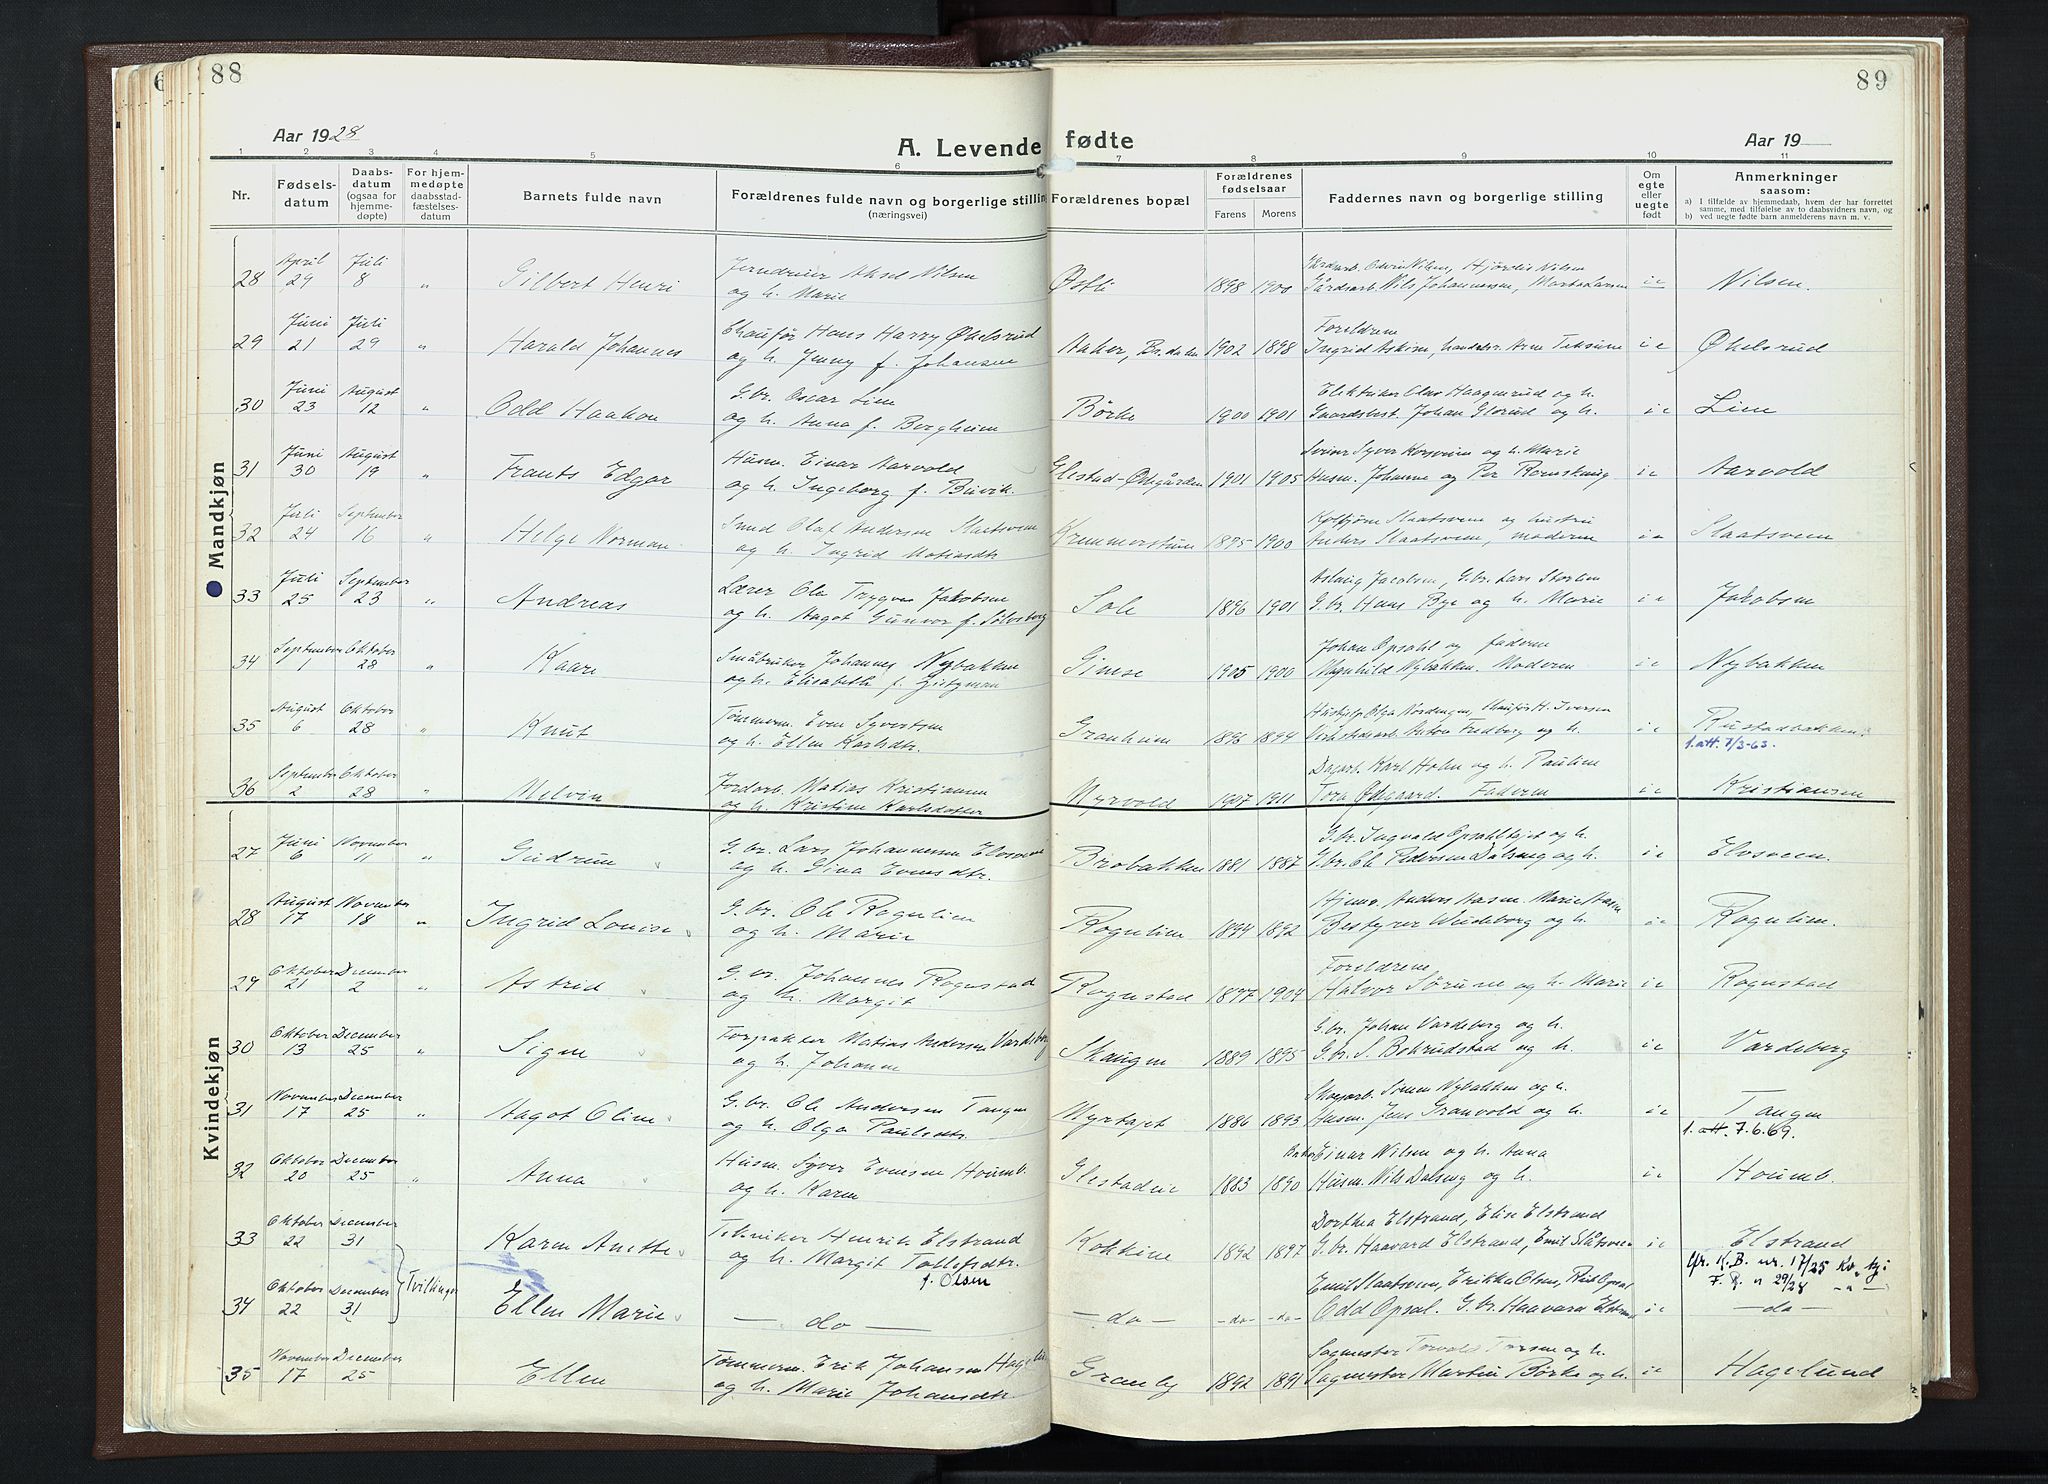 88
89
Aar 1928
A. Levende fødte
Aar 19
1 2 3 4 5 6 7 8 9 10 11
Nr.
Fødselsdatum
Daabsdatum (ogsaa for hjemmedøpte)
For hjemmedøpte daabsstadfæstelsesdatum
Barnets fulde navn
Forældrenes fulde navn og borgerlige stilling (næringsvei)
Forældrenes bopæl
Forældrenes fødselsaar
Farens
Morens
Faddernes navn og borgerlige stilling
Om egte eller uegte født
Anmerkninger saasom:
a) I tilfælde av hjemmedaab, hvem der har forrettet samme, med tilføielse av to daabsvidners navn, og
b) ved uegte fødte barn anmelderens navn m. v.
Mandkjøn
April Juli
28 29 8 " Gilbert Henri Aksel Nilsen og h. Marie Østli 1898 1900 Nils Johannessen, Marta Larsen Nilsen.
Juni Juli
29 21 29 " Harald Johannes Chaufør Hans Harry Økelsrud og h. Jenny f. Johansen Aker 1902 1898 Foreldrene Ingrid Askim, Arne Økelsrud
Juni August
30 23 12 " Odd Haakon G.br. Oscar Line og h. Anna f. Bergheim Børke 1900 1901 Elektriker Olav Haagenrud og h. Johan Glorud og h. Line
Juni August
31 30 19 " Frants Edgar Husm. Einar Aarvold og h. Ingeborg f. Buvik. Elstad-Ødegården 1901 1905 Syver Korsveien og h. Marie Husm. Johanne og Per Romskaug Aarvold
Juli September
32 24 16 " Helge Norman Smed Olaf Andersen Slaatsveen og h. Ingrid Matiasdtr. 1875 1900 Kolbjørn Slaatsveen og hustru Anders Slaatsveen, moderen Slaatsveen
Juli September
33 25 23 " Andreas Lærer Ole Trygve Jakobsen og h. Aagot Gunvor f. Sølvsberg Sole 1896 1901 Aslaug Jacobsen, G.br. Lars Storlien G.br. Hans Bye og h. Marie Jakobsen
September Oktober
34 1 28 " Kaare Småbruker Johannes Nybakken og h. Elisabeth f. 1905 1900 Johan Opsahl og faderen Magnhild Nybakken. Moderen Nybakken
August Oktober
35 6 28 " Knut Tømmerm. Even Syvertsen og h. Ellen Karlsdtr. Granheim 1896 1894 Olga Nordengen, Chaufør H. Iversen Anton Fredborg og h. Rustadbakken.
1. att. 7/3-63.
September Oktober
36 2 28 " Melvin Jordarb. Matias Kristiansen og h. Kristine Karlsdatter Myrvold 1907 1911 Dagarb. Karl Holen og h. Pauline Tora Ødegaard. Faderen Kristiansen
Kvindekjøn
Juni November
27 6 11 " Gudrun G.br. Lars Johannessen Elvsveen og h. Gina Evensdtr. Brobakken 1881 1887 G.br. Ingvald Opsahlhøjet og h. G.br. Ole Pedersen Dalseng og h. Elvsveen.
August November
28 17 18 " Ingrid Louise G.br. Ole Rognlien og h. Marie Rognlien 1894 1892 Anders Aasen. Marie Aasen Bestyrer Weideborg og h. Rognlien.
Oktober December
29 21 2 " Astrid G.br. Johannes Rognstad og h. Margit Rognstad 1877 1904 Foreldrene Halvor Sørune og h. Marie Rognstad
Oktober December
30 13 25 " Signe Forpakter Matias Andersen Vardeberg og h. Johanne Skaugen 1889 1895 G.br. Johan Vardeberg og h. G.br. S. Bekrudstad og h. Vardeberg
November December
31 17 25 " Aagot Oline G.br. Ole Andersen Tangen og h. Olga Paulsdtr. Myrtajet 1886 1893 Skogarb. Simen Nybakken og h. Husm. Jens Granvold og h. Tangen
1. att. 7.6.69.
Oktober December
32 20 25 " Anna Husm. Syver Evensen Houmb. og h. Karen Glestadeie 1883 1890 Einar Nilsen og h. Anna Husm. Nils Dalseng og h. Houmb.
Oktober December
33 22 31 Karen Anette Tekniker Henrik Elstrand og h. Margit Tollefsdtr. f. Olsen Kokkine 1892 1897 Dorthea Elstrand, Elise Elstrand G.br. Haavard Elstrand, Emil Slåtsveen Elstrand
Cfr. K.B. nr. 17/25 Kv.kj:
F. R. n 29/28 - " -
Tvillinger
Oktober December
34 22 31 Ellen Marie — do — — do — -do- -do- Emil Slaatsveen, Erikka Olsen, Odd Opsal. G.br. Haavard Elstrand — do —
November December
35 17 25 Ellen Tømmerm. Erik Johansen Hagelund og h. Marie Johansdtr. Granby 1892 1891 Sagmester Torvald Iversen og h. Sagmester Martin Børke og h. Hagelund